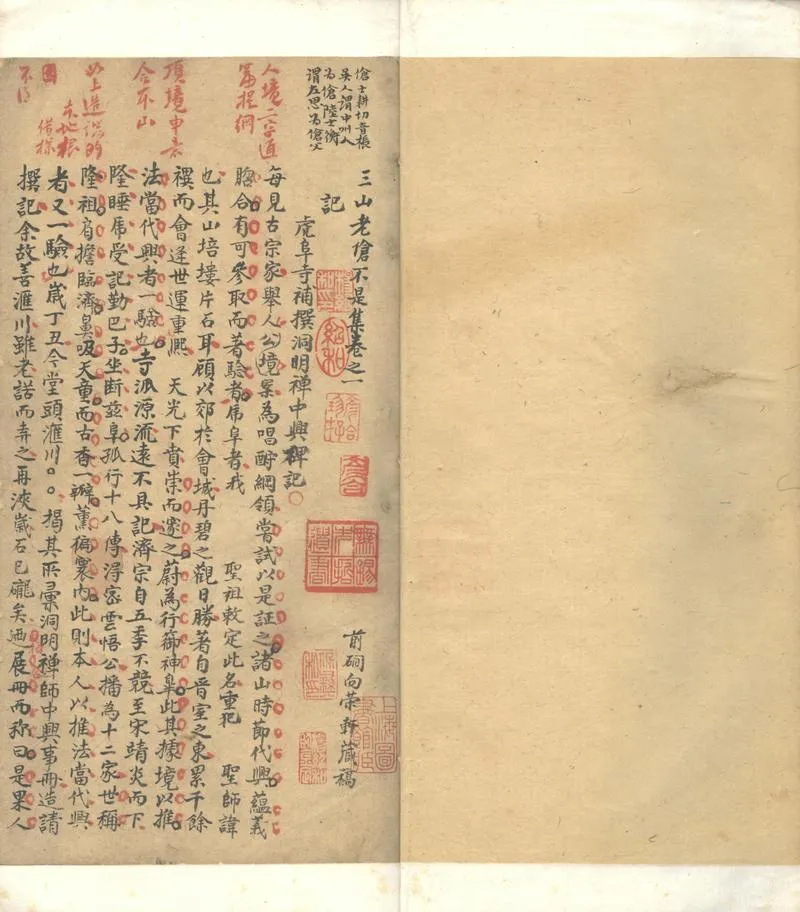 傖士耕切音棖
吳人謂中州人
為傖陸士衡
謂左思為傖父
三山老傖不是集卷之一
前硐向榮軒藏稿
記
虎阜寺補撰洞明禅中興碑記
每見古宗家舉人公境案為唱酧綱領嘗試以是証之諸山時節代興蘊義
脗合有可參取而著驗者虎阜者我 聖祖敕定此名重犯 聖師諱
也其山培塿片石耳顧以郊於會城丹碧之觀日勝著自晋室之東累千餘
禩而會逢世運重熙 天光下賁崇而邃之蔚為行衛神臯此其據境以推
法當代興者一驗也寺派源流遠不具記濟宗自五季不競至宋靖炎而下
隆睡虎受記勤巴子坐断兹阜孤行十八傳淂密雲悟公播為十二家世稱
隆祖肩擔臨濟鼻吸天童而古香一瓣薰徧寰内此則本人以推法當代興
者又一驗也嵗丁丑今堂頭滙川。。揭其所彙洞明禅師中興事冊造請
撰記余故善滙川雖老諾而弆之再浹嵗石已礲矣迺展冊而称曰是果人
人境二字通
篇提綱
頂境申言
合本山
以上造端的
不得
無錫
遺書